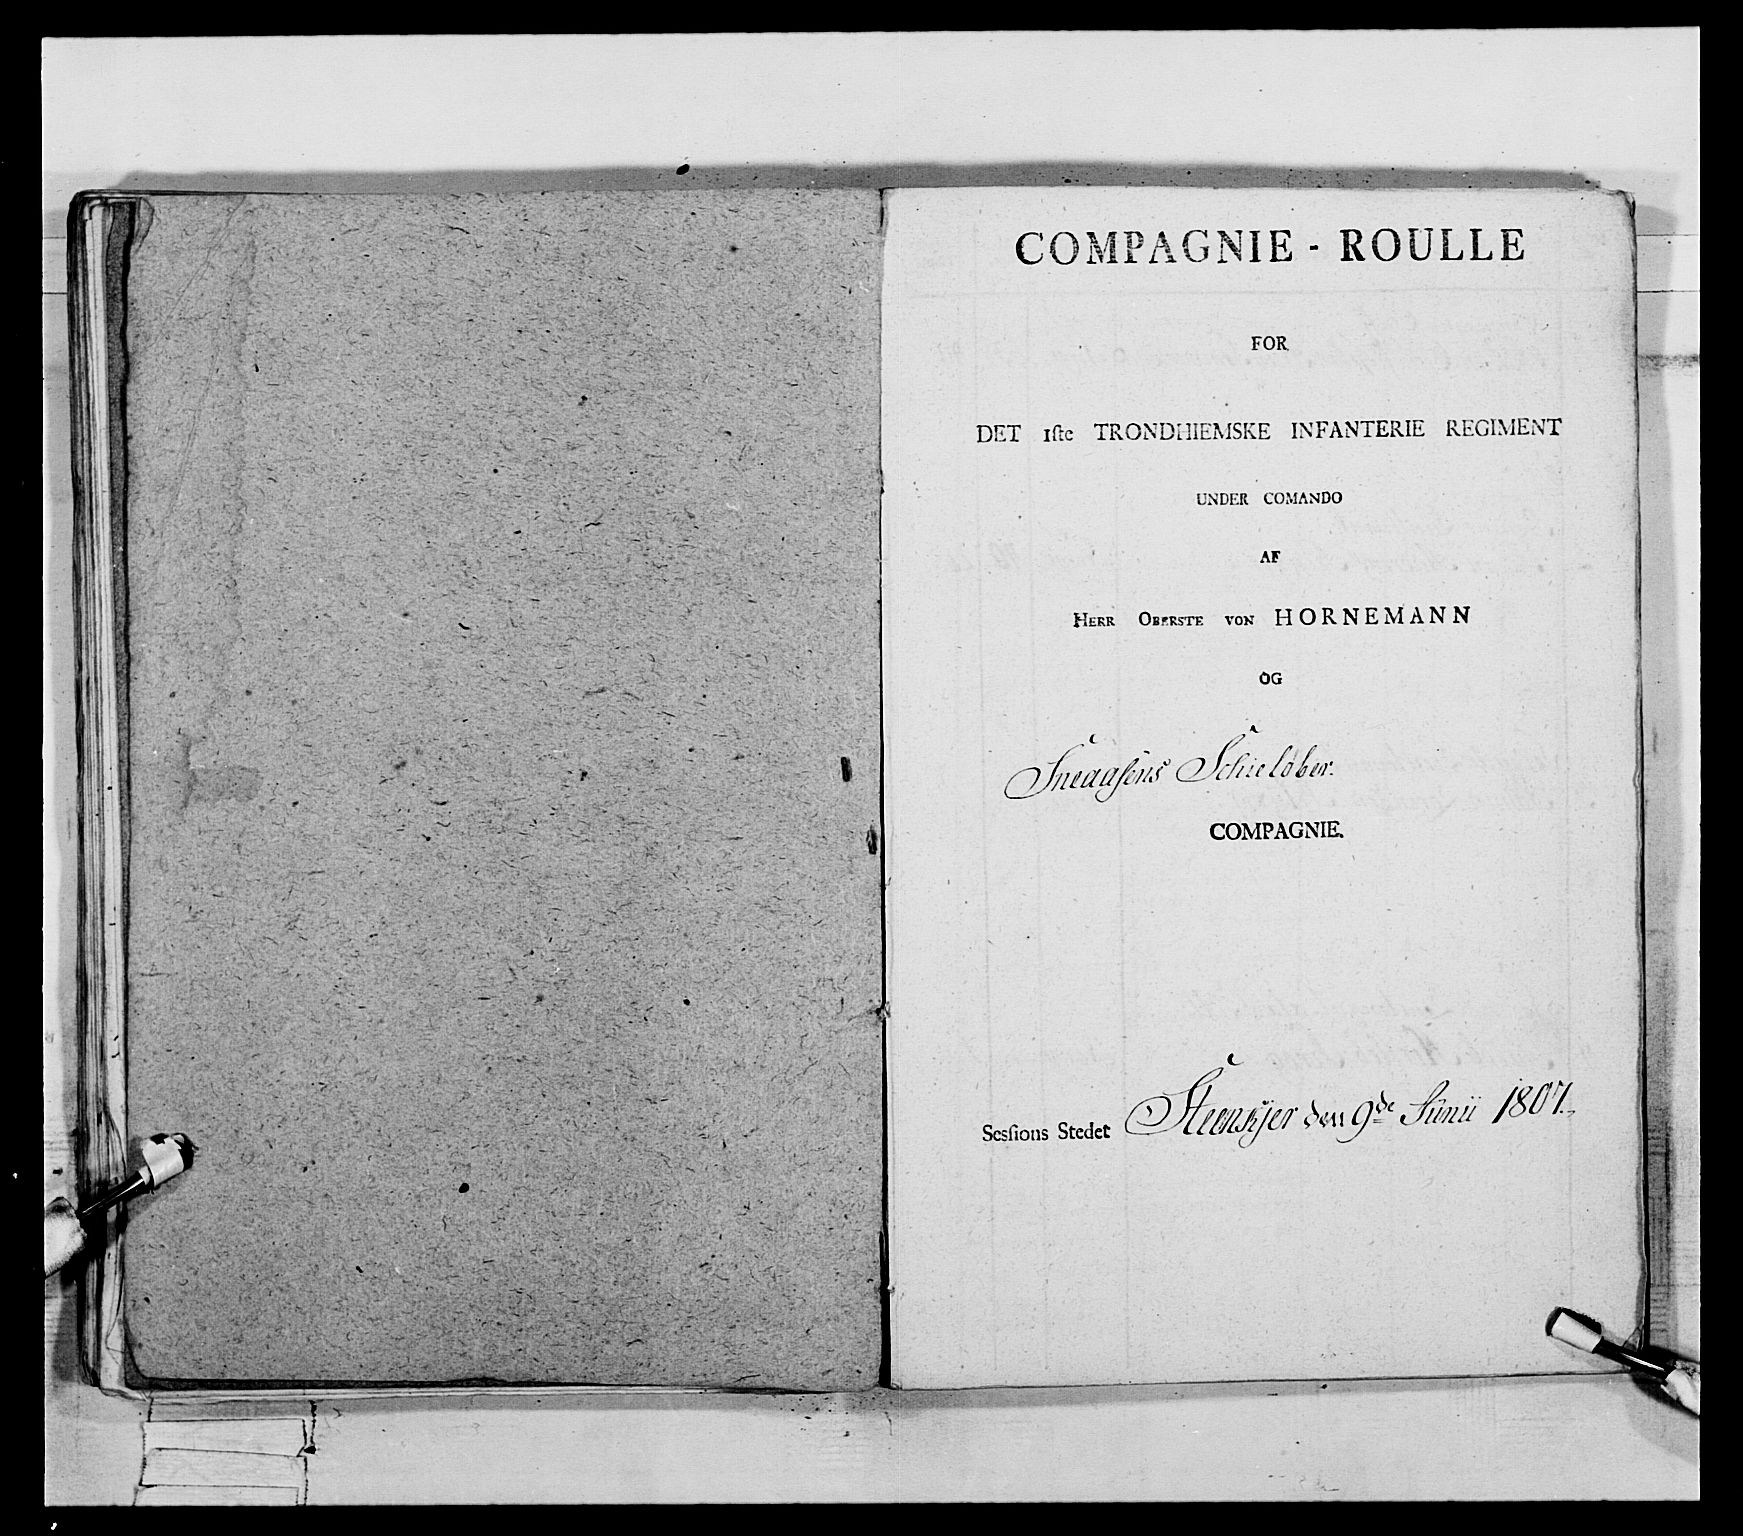 COMPAGNIE - ROULLE
FOR
DET 1ste TRONDHIEMSKE INFANTERIE REGIMENT
UNDER COMANDO
AF
HERR OBERSTE VON HORNEMANN
OG
Sneaasens Schieløber.
COMPAGNIE.
Sessions Stedet Steenkjer den 9de Junii 1807.